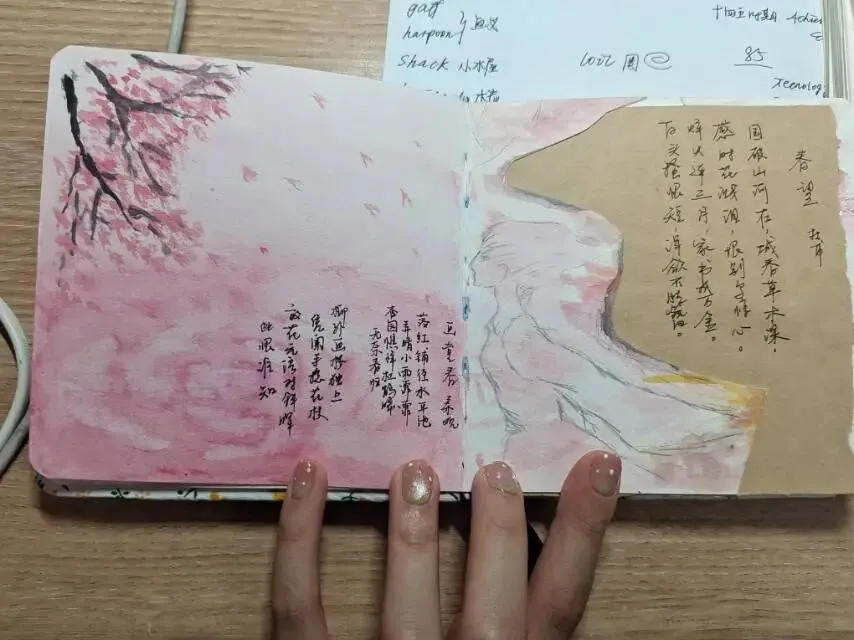 gaff
harpoon } 鱼叉
shack 小木屋
十四五时期
85
画堂春 秦观
落红铺径水平池
弄晴小雨霏霏
杏园憔悴杜鹃啼
无奈春归
柳外画楼独上
凭阑手捻花枝
放花无语对斜晖
此恨谁知
春望 杜甫
国破山河在，城春草木深，
感时花溅泪，恨别鸟惊心。
烽火连三月，家书抵万金。
白头搔恨短，浑欲不胜簪。